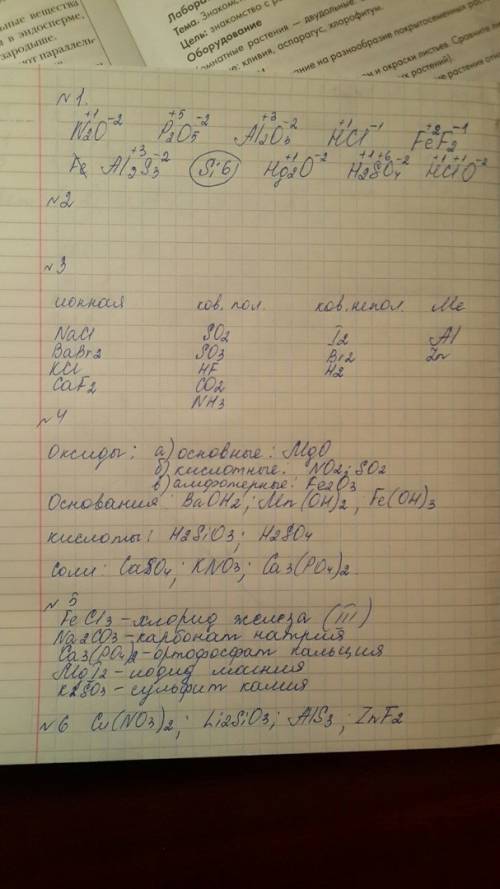 ьные вещества
в эндосперме.
зародыше.
ют параллель-
Тема. Знакомс
Цель: знакомство с р
Оборудование
омнатные растения — двудольные
е: кливия, аспарагус, хлорофитум.
ние на разнообразие покрытосеменных рас
и и окраски листьев. Сравните
ких растений).
№1.
+1 +5 -2 +3 +1 +2
N2O-2 P2O5 Al2O3-2 HCl-1 FeF2-1
Fe +3 Al2S3-2 Si-6 +1 Hg2O-2 +1+6 H2SO4-2 +1+1 HClO-2
№2
№3
ионная ков. пол. ков. непол. Me
NaCl SO2 I2 Al
BaBr2 SO3 Br2 Zn
KCl HF H2
CaF2 CO2
NH3
№4
Оксиды: а) основные: MgO
б) кислотные: NO2; SO2
в) амфотерные: Fe2O3
Основания: BaOH2; Mn(OH)2, Fe(OH)3
кислоты: H2SiO3; H2SO4
соли: CaSO4; KNO3; Ca3(PO4)2.
№5
FeCl3 - хлорид железа (III)
Na2CO3 - карбонат натрия
Ca3(PO4)2 - ортофосфат кальция
MgI2 - иодид магния
K2SO3 - сульфит калия
№6 Cu(NO3)2; Li2SiO3; AlS3; ZnF2